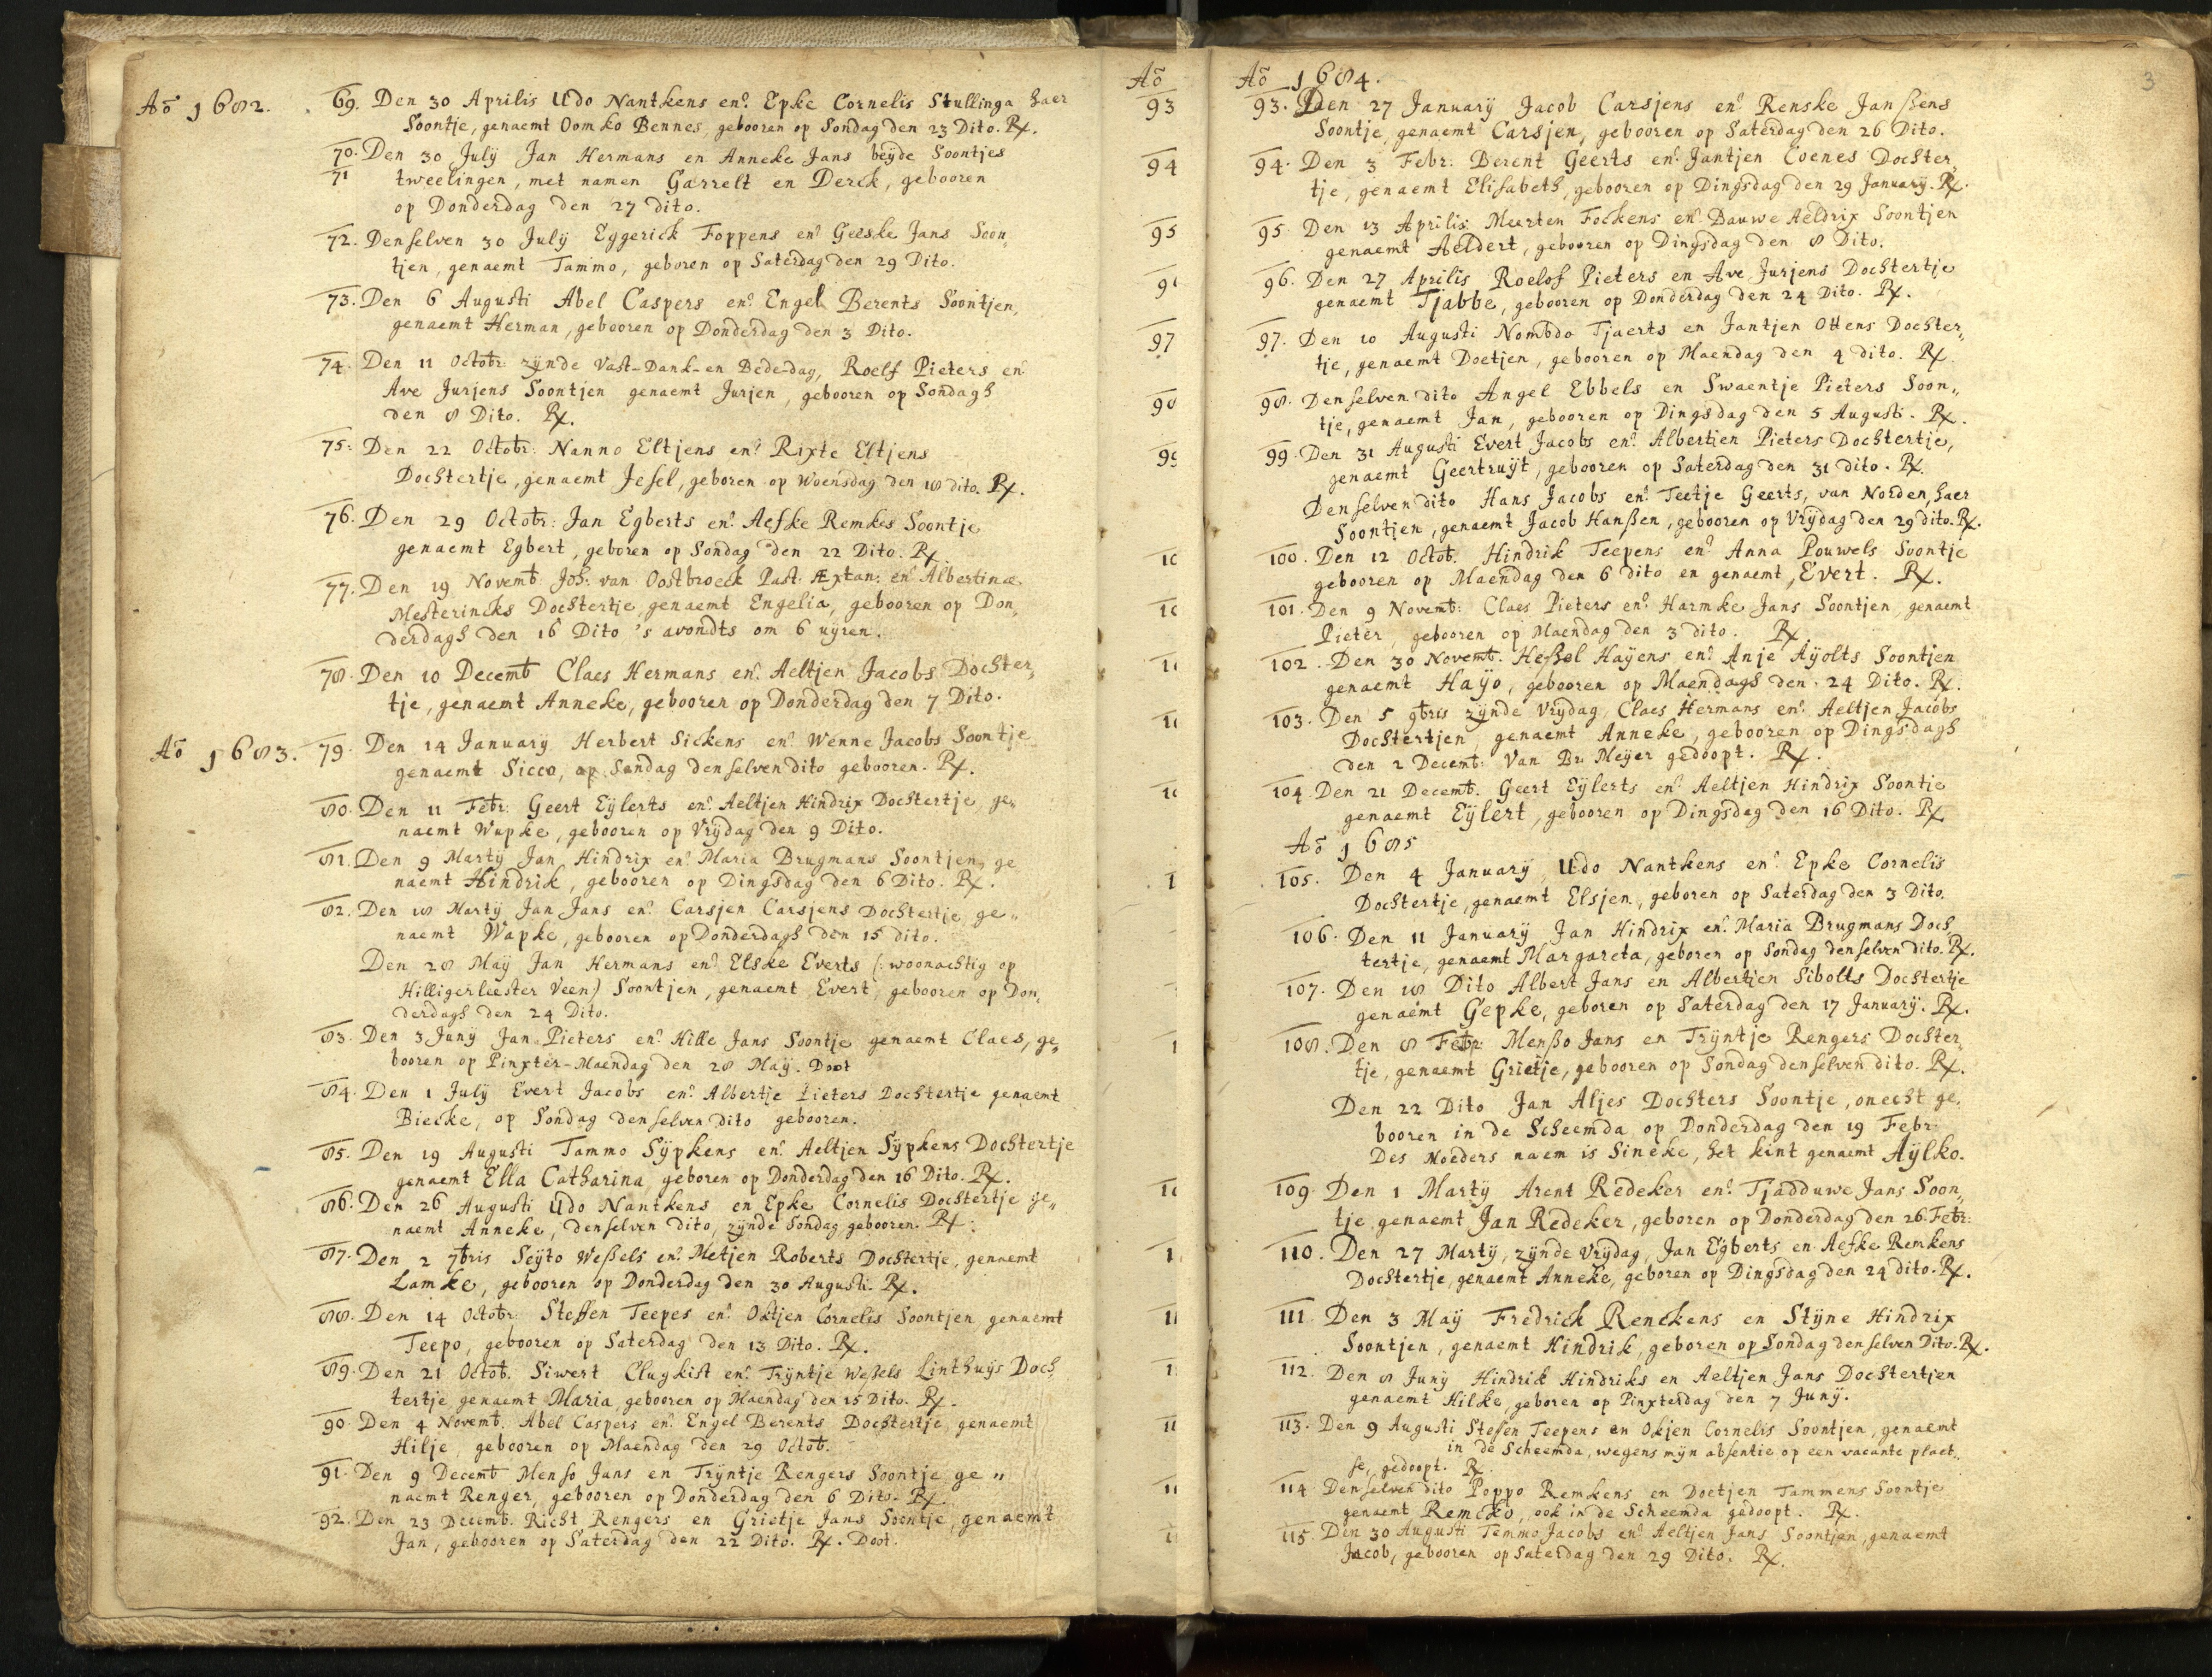 Aō 1682.
69. Den 30 Aprilis Udo Nantkens en Epke Cornelis Stullinga haer
Soontje, genaemt Oomko Bennes, gebooren op Sondag den 23 Dito. Rx.
70. Den 30 Julÿ Jan Hermans en Anneke Jans beÿde Soontjes
71 tweelingen, met namen Garrelt en Derck, gebooren
op Donderdag den 27 dito.
72. Denselven 30 Julÿ Eggerick Foppens en Geeske Jans Soon„
tjen, genaemt Tammo, geboren op Saterdag den 29 Dito.
73. Den 6 Augusti Abel Caspers en Engel Berents Soontjen,
genaemt Herman, gebooren op Donderdag den 3 Dito.
74. Den 11 Octobr: zÿnde Vast-Dank-en Bededag, Roelf Pieters en
Ave Jurjens Soontjen genaemt Jurjen, gebooren op Sondagh
den 8 Dito. Rx.
75. Den 22 Octobr: Nanno Eltjens en Rixte Eltjens
Dochtertje, genaemt Jesel, geboren op Woensdag den 18 dito. Rx.
76. Den 29 Octobr: Jan Egberts en Aefke Remkes Soontje
genaemt Egbert, geboren op Sondag den 22 Dito. Rx
77. Den 19 Novemb Joh: van Oostbroeck Past: Æxtan: en Albertina
Mesterincks Dochtertje genaemt Engelia, gebooren op Don„
derdagh den 16 Dito 's avondts om 6 uÿren.
78. Den 10 Decemb Claes Hermans en Aeltjen Jacobs Dochter„
tje, genaemt Anneke, gebooren op Donderdag den 7 Dito.
Aō 1683.
79. Den 14 Januarÿ Herbert Sickens en Wenne Jacobs Soontje
genaemt Sicco, op Sondag denselven dito gebooren. Rx.
80. Den 11 Febr: Geert Eÿlerts en Aeltjen Hindrix Dochtertje, ge„
naemt Wupke, gebooren op Vrÿdag den 9 Dito.
81. Den 9 Martÿ Jan Hindrix en Maria Brugmans Soontjen, ge
naemt Hindrik, gebooren op Dingsdag den 6 Dito. Rx.
82. Den 18 Martÿ Jan Jans en Carsjen Carsjens Dochtertje ge„
naemt Wapke, gebooren op Donderdagh den 15 dito.
Den 28 Maÿ Jan Hermans en Elske Everts (: woonachtig op
Hilligerleester Veen) Soontjen, genaemt Evert, gebooren op Don„
derdagh den 24 Dito.
83. Den 3 Junÿ Jan Pieters en Hille Jans Soontje genaemt Claes, ge„
booren op Pinxter-Maendag den 28 Maÿ. Doot
84. Den 1 Julÿ Evert Jacobs en Albertje Pieters Dochtertje genaemt
Biecke, op Sondag denselven dito gebooren.
85. Den 19 Augusti Tammo Sÿpkens en Aeltjen Sÿpkens Dochtertje
genaemt Ella Catharina geboren op Donderdag den 16 Dito. Rx.
86. Den 26 Augusti Udo Nantkens en Epke Cornelis Dochtertje ge„
naemt Anneke, denselven dito, zÿnde Sondag gebooren. Rx.
87. Den 2 7bris Seÿto Weßels en Metjen Roberts Dochtertje, genaemt
Lamke, gebooren op Donderdag den 30 Augusti. Rx.
88. Den 14 Octobr: Steffen Teepes en Oktjen Cornelis Soontjen, genaemt
Teepo, gebooren op Saterdag den 13 Dito. Rx.
89. Den 21 Octob. Siwert Clugkist en Trÿntje Weßels Linthuÿs Doch„
tertje genaemt Maria, gebooren op Maendag den 15 Dito. Rx.
90. Den 4 Novemb. Abel Caspers en Engel Berents Dochtertje genaemt
Hilje, gebooren op Maendag den 29 Octob.
91. Den 9 Decemb Menso Jans en Trÿntje Rengers Soontje ge„
naemt Renger, gebooren op Donderdag den 6 Dito. Rx.
92. Den 23 Decemb. Richt Rengers en Grietje Jans Soontje, genaemt
Jan, gebooren op Saterdag den 22 Dito. Rx. Doot.
Aō
93
94
95
97
3
Aō 1684.
93. Den 27 Januarÿ Jacob Carsjens en Renske Janßens
Soontje, genaemt Carsjen, gebooren op Saterdag den 26 Dito.
94. Den 3 Febr: Berent Geerts en Jantjen Coenes Dochter„
tje, genaemt Elisabeth, gebooren op Dingsdag den 29 Januarÿ. Rx.
95. Den 13 Aprilis Meerten Fockens en Bauwe Aeldrix Soontjen
genaemt Aeldert, gebooren op Dingsdag den 8 Dito.
96. Den 27 Aprilis Roelof Pieters en Ave Jurjens Dochtertje
genaemt Tjabbe, gebooren op Donderdag den 24 Dito. Rx.
97. Den 10 Augusti Nombdo Tjaerts en Jantjen Ottens Dochter„
tje, genaemt Doetjen, gebooren op Maendag den 4 dito. Rx.
98. Denselven dito Angel Ebbels en Swaentje Pieters Soon„
tje, genaemt Jan, gebooren op Dingsdag den 5 Augusti. Rx.
99. Den 31 Augusti Evert Jacobs en Albertjen Pieters Dochtertje,
genaemt Geertruÿt, gebooren op Saterdag den 31 dito. Rx.
Denselven dito Hans Jacobs en Teetje Geerts, van Norden, haer
Soontjen, genaemt Jacob Hanßen, gebooren op Vrÿdag den 29 dito. Rx.
100. Den 12 Octob. Hindrik Teepens en Anna Pouwels Soontje
gebooren op Maendag den 6 dito en genaemt, Evert. Rx.
101. Den 9 Novemb: Claes Pieters en Harmke Jans Soontjen, genaemt
Pieter, gebooren op Maendag den 3 dito. Rx
102. Den 30 Novemb. Heßel Haÿens en Anje Aÿolts Soontjen
genaemt Haÿo, gebooren op Maendagh den 24 Dito. Rx.
103. Den 5 9bris zÿnde Vrÿdag, Claes Hermans en Aeltjen Jacobs
Dochtertjen, genaemt Anneke, gebooren op Dingsdagh
den 2 Decemb: Van Br: Meÿer gedoopt. Rx.
104. Den 21 Decemb. Geert Eÿlerts en Aeltjen Hindrix Soontje
genaemt Eÿlert, gebooren op Dingsdag den 16 Dito. Rx
Aō 1685
105. Den 4 Januarÿ, Udo Nantkens en Epke Cornelis
Dochtertje, genaemt Elsjen, geboren op Saterdag den 3 Dito.
106. Den 11 Januarÿ Jan Hindrix en Maria Brugmans Doch„
tertje, genaemt Margareta, geboren op Sondag denselven dito. Rx.
107. Den 18 Dito Albert Jans en Albertjen Sibolts Dochtertje
genaemt Gepke, geboren op Saterdag den 17 Januarÿ. Rx.
108. Den 8 Febr: Menßo Jans en Trÿntje Rengers Dochter„
tje, genaemt Grietje, gebooren op Sondag denselven dito. Rx.
Den 22 Dito Jan Aljes Dochters Soontje, onecht ge„
booren in de Scheemda op Donderdag den 19 Febr:
Des Moeders naem is Sineke, het kint genaemt Aÿlko.
109. Den 1 Martÿ Arent Redeker en Tjadduwe Jans Soon„
tje, genaemt Jan Redeker, geboren op Donderdag den 26. Febr:
110. Den 27 Martÿ, zÿnde Vrÿdag, Jan Egberts en Aefke Remkens
Dochtertje, genaemt Anneke, geboren op Dingsdag den 24 dito. Rx.
111. Den 3 Maÿ Fredrick Renckens en Stÿne Hindrix
Soontjen, genaemt Hindrik, geboren op Sondag denselven Dito. Rx.
112. Den 8 Junÿ Hindrik Hindriks en Aeltjen Jans Dochtertjen
genaemt Hilke, geboren op Pinxterdag den 7 Junÿ.
113. Den 9 Augusti Steffen Teepens en Okjen Cornelis Soontjen, genaemt
in de Scheemda, wegens mÿn absentie op een vacante plaet„
se, gedoopt. Rx
114. Denselven dito Poppo Remkens en Doetjen Tammens Soontje
genaemt Remcko, ook in de Scheemda gedoopt. Rx.
115. Den 30 Augusti Temmo Jacobs en Aeltjen Jans Soontjen, genaemt
Jacob, gebooren op Saterdag den 29 Dito. Rx.